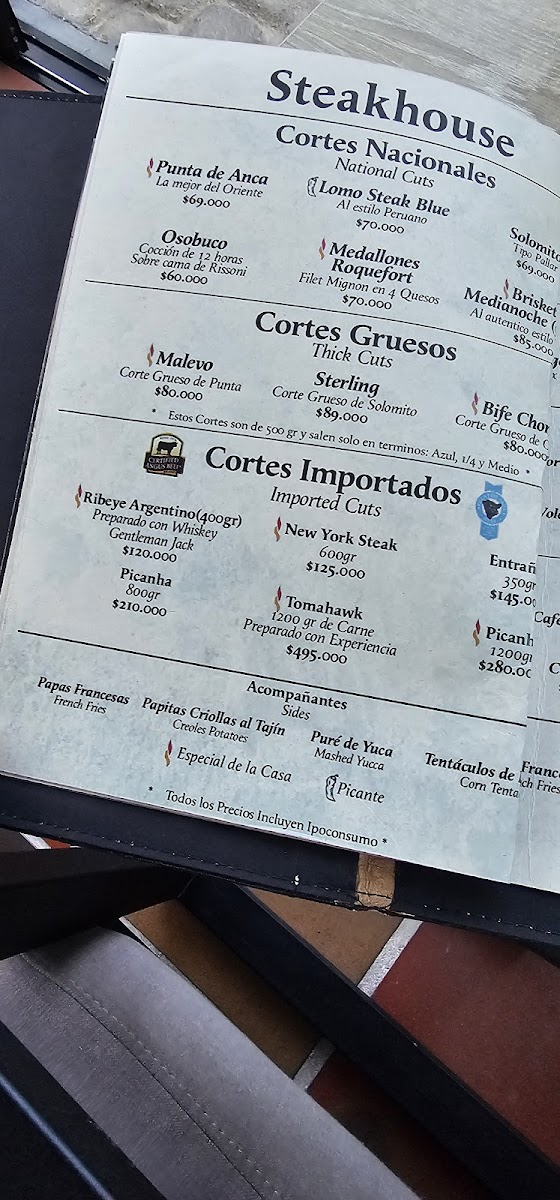 Steakhouse
Cortes Nacionales
National Cuts
Punta de Anca
La mejor del Oriente
$69.000
Lomo Steak Blue
Al estilo Peruano
$70.000
Solomito
Tipo Pallar
$69.000
Osobuco
Cocción de 12 horas
Sobre cama de Rissoni
$60.000
Medallones
Roquefort
Filet Mignon en 4 Quesos
$70.000
Brisket
Medianoche (
Al autentico estilo
$85.000
Cortes Gruesos
Thick Cuts
Malevo
Corte Grueso de Punta
$80.000
Sterling
Corte Grueso de Solomito
$89.000
Bife Chor
Corte Grueso de C
$80.000
* Estos Cortes son de 500 gr y salen solo en terminos: Azul, 1/4 y Medio *
CERTIFIED
ANGUS BEEF
Cortes Importados
Imported Cuts
Ribeye Argentino(400gr)
Preparado con Whiskey
Gentleman Jack
$120.000
New York Steak
600gr
$125.000
Entrañ
350gr
$145.00
Picanha
800gr
$210.000
Tomahawk
1200 gr de Carne
Preparado con Experiencia
$495.000
Picanh
1200gr
$280.00
Acompañantes
Sides
Papas Francesas
French Fries
Papitas Criollas al Tajín
Creoles Potatoes
Puré de Yuca
Mashed Yucca
Tentáculos de
Corn Tenta
Especial de la Casa
Picante
* Todos los Precios Incluyen Ipoconsumo *